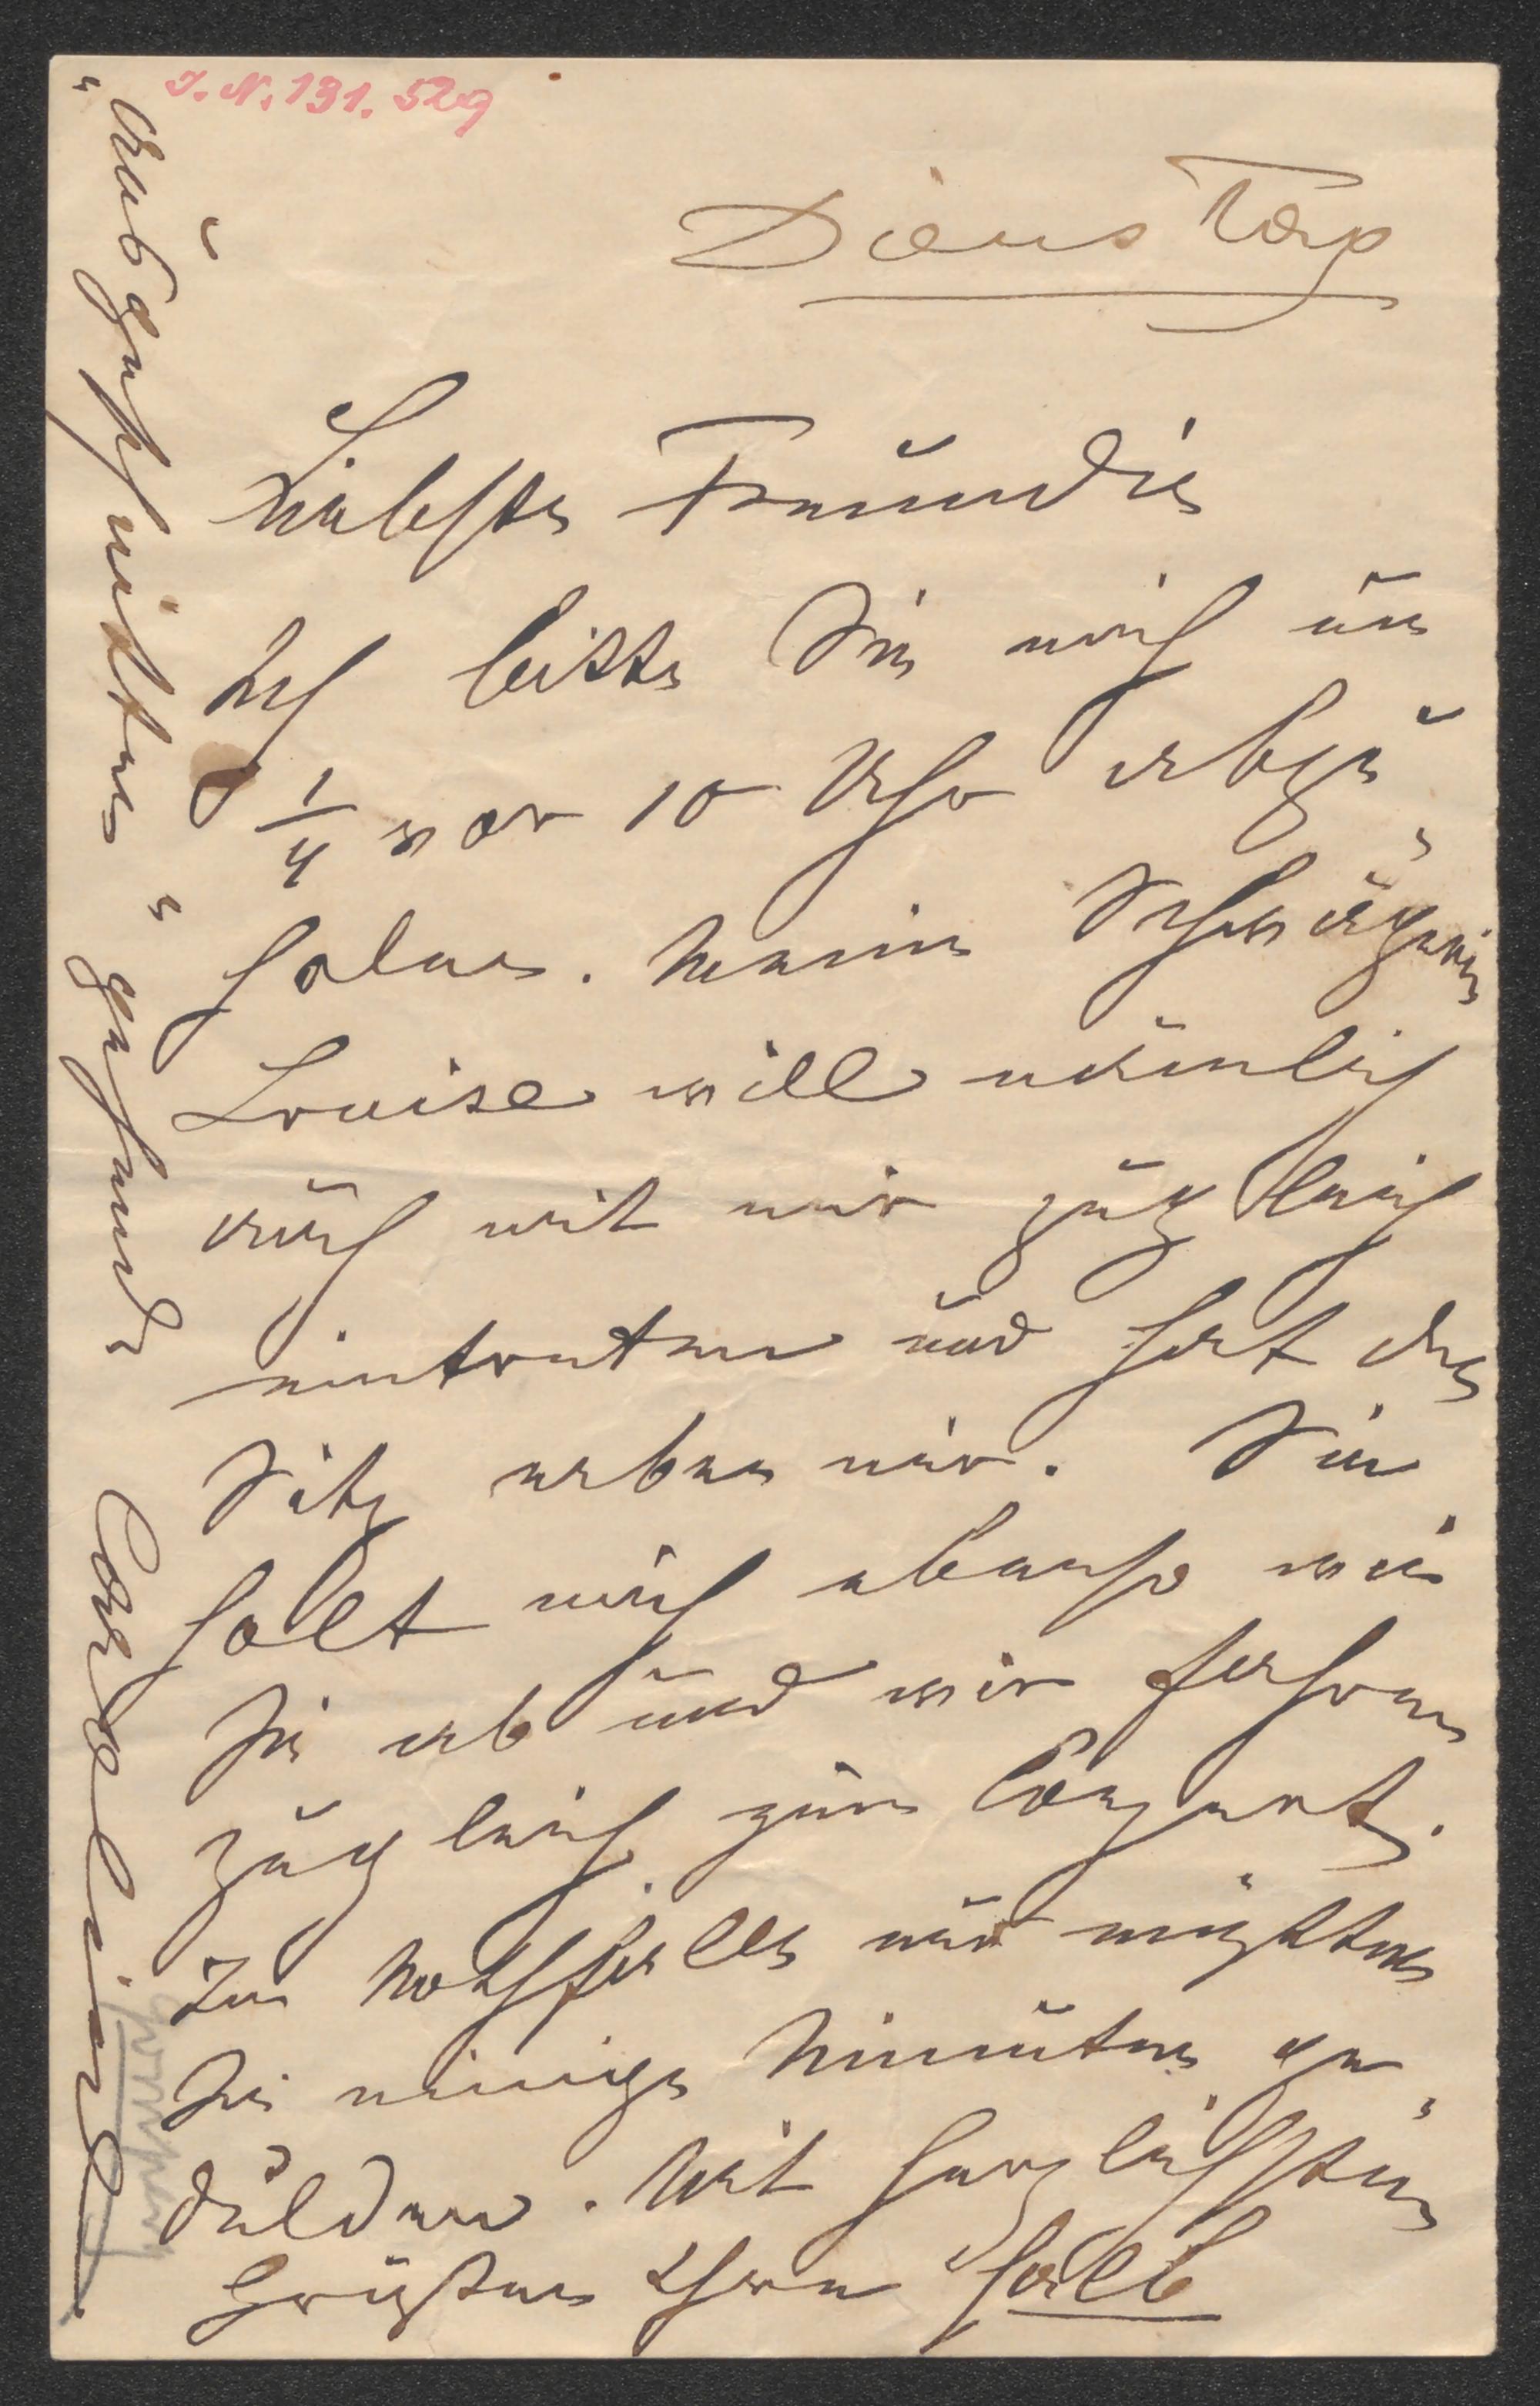 I. N. 131. 529
Dienstag
Liebste Freundin
Ich bitte Sie mich um
1/4 vor 10 Uhr abzu„
holen. Meine Schwägerin
Louise will nämlich
auch mit mir zugleich
eintreten und hat den
Sitz neben mir. Sie
holt mich ebenso wie
Sie ab und wir fahren
zugleich zum Conzert.
Im Nothfalle nur müßten
Sie einige Minuten ge„
dulden. Mit herzlichsten
Grüßen Ihre halb
„ausgeschnittene“ gesunde
Caroline